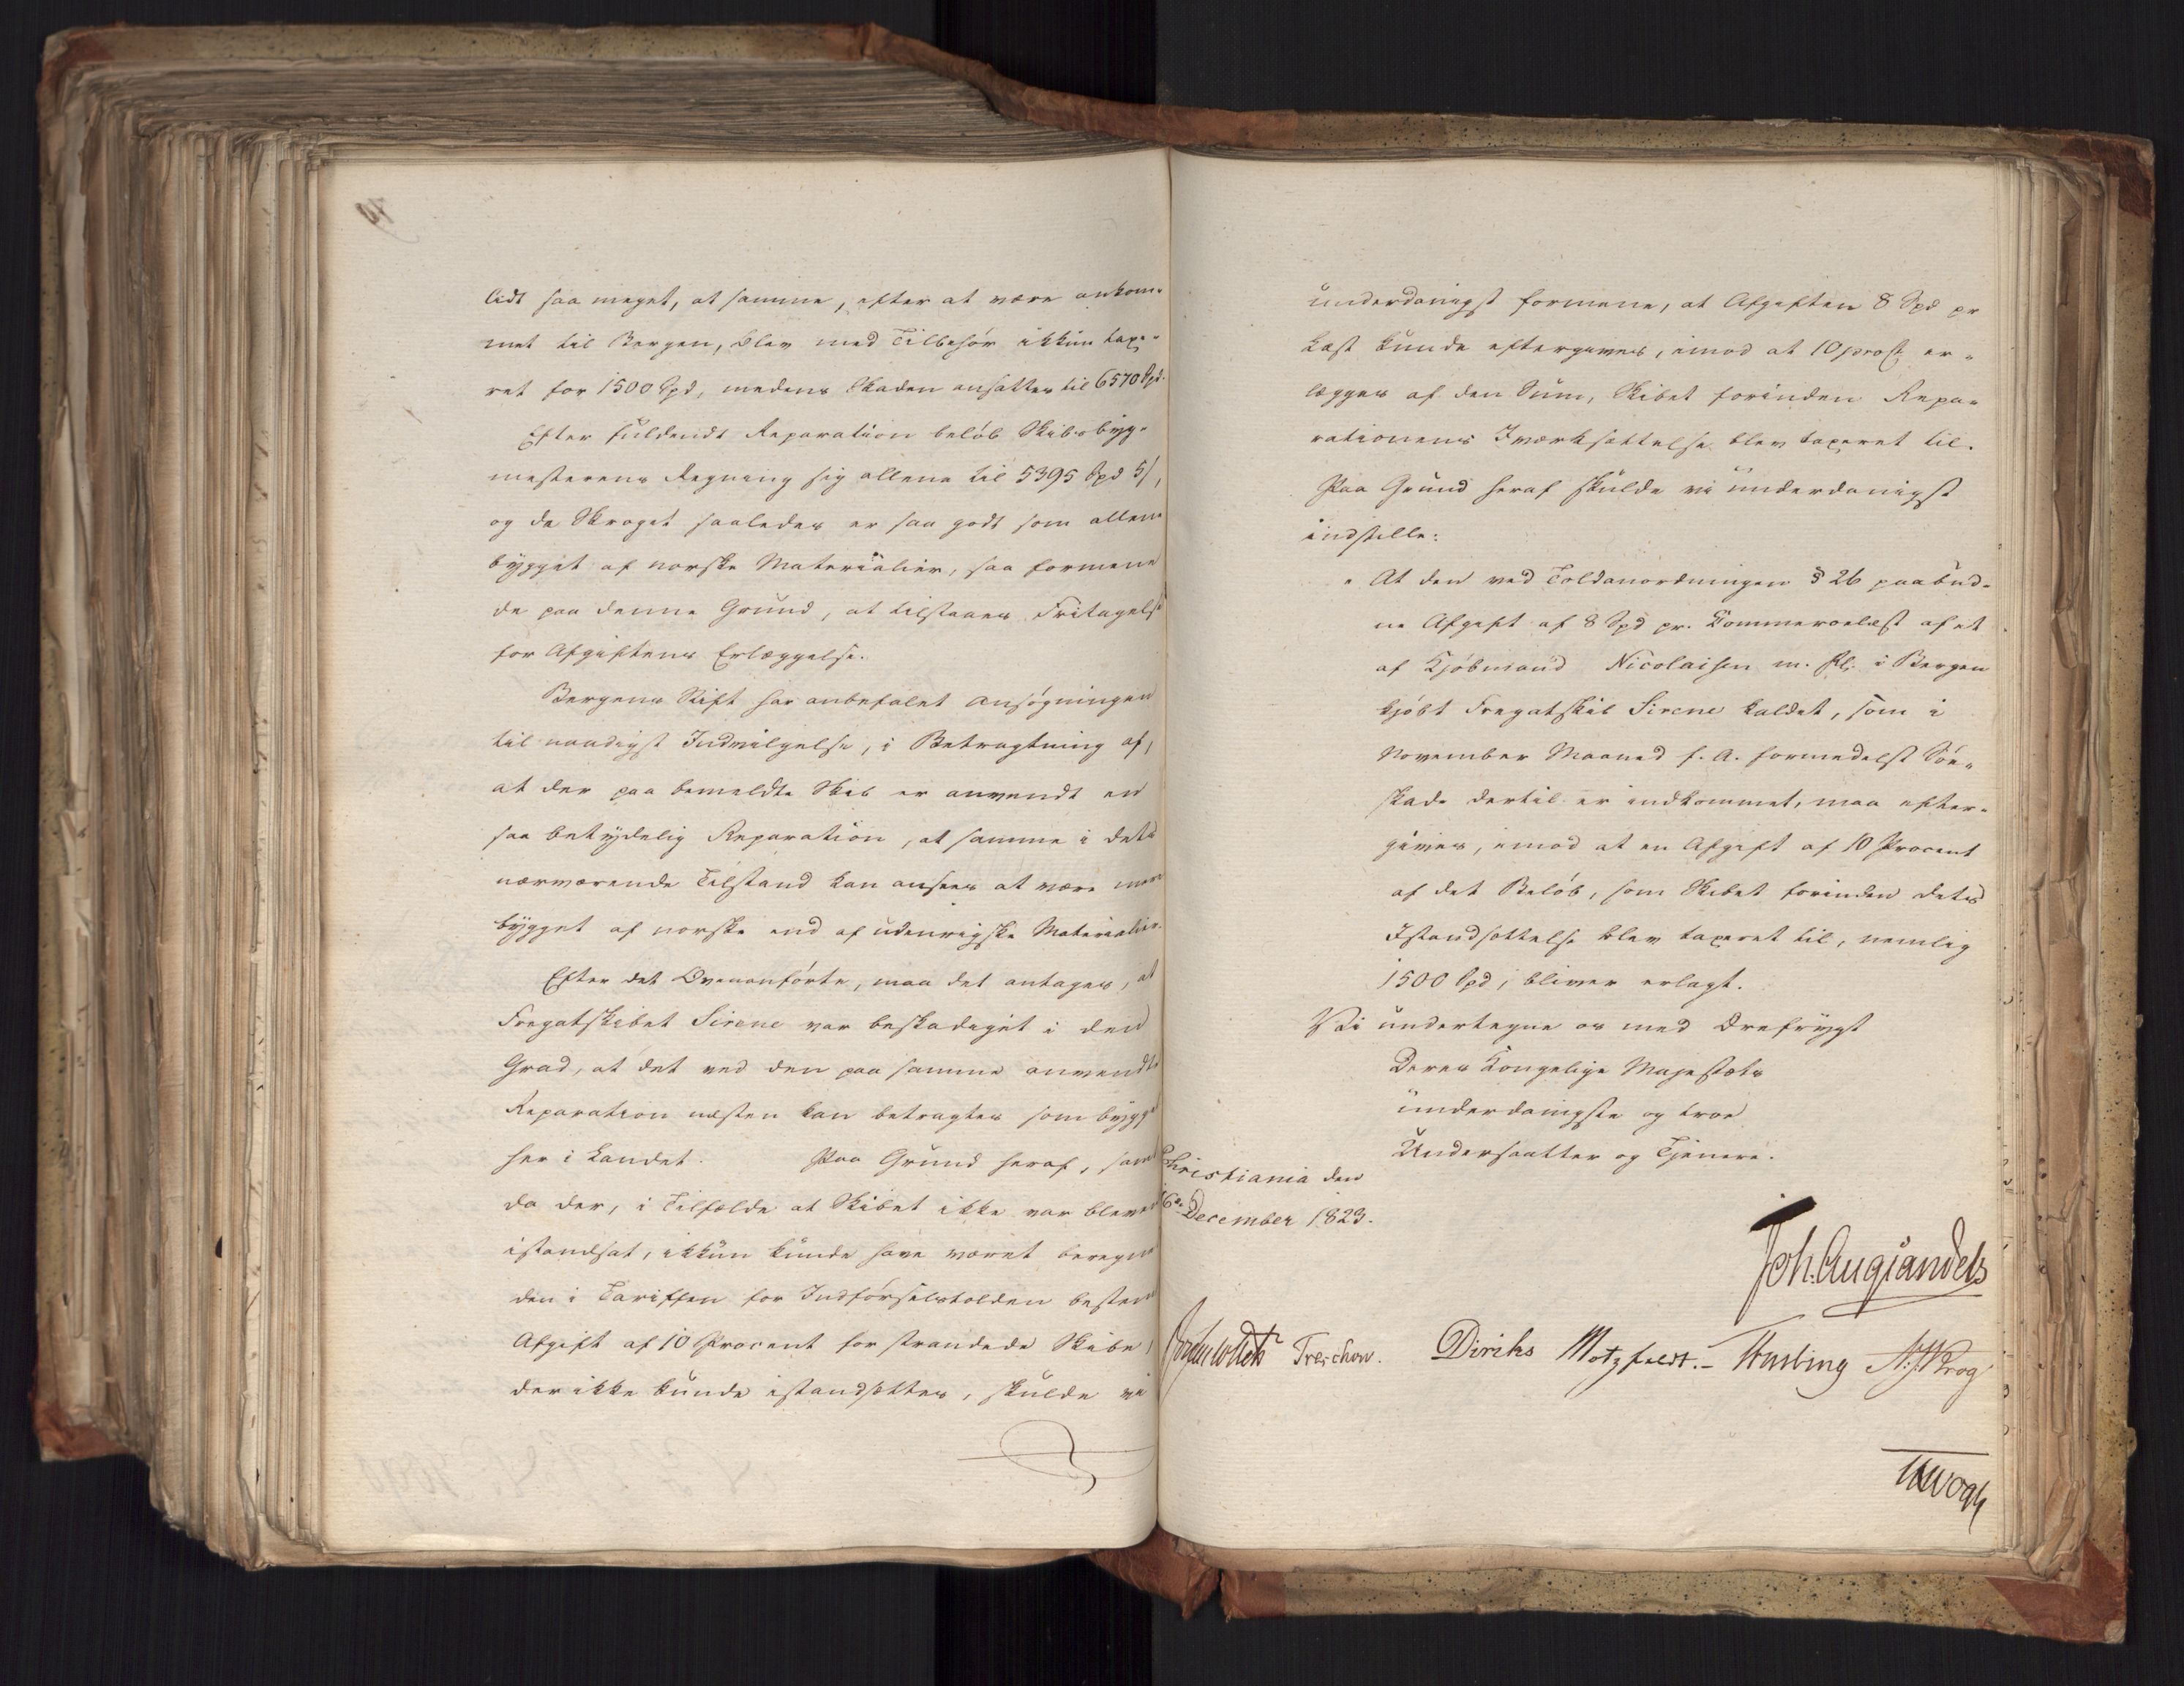 lidt saa meget, at samme, efter at være ankom-
met til Bergen, blev med Tilbehør ikkun taxe-
ret for 1500 Spd, medens Skaden ansattes til 6570 Spd.
Efter fuldendt Reparation beløb Skibsbyg-
mesterens Regning sig allene til 5395 Spd 5/,
og da Skroget saaledes er saa godt som allene
bygget af norske Materialier, saa formene
de paa denne Grund, at tilstaaes Fritagelse
for Afgiftens Erlæggelse.
Bergens Stift har anbefalet Ansøgningen
til naadigst Indvilgelse, i Betragtning af,
at der paa bemeldte Skib er anvendt en
saa betydelig Reparation, at samme i dets
nærværende Tilstand kan ansees at være mere
bygget af norske end af udenrigske Materialier.
Efter det Ovenanførte, maa det antages, at
Fregatskibet Sirene var beskadiget i den
Grad, at det ved den paa samme anvendte
Reparation næsten kan betragtes som bygget
her i Landet. Paa Grund heraf, samt
da der, i Tilfælde at Skibet ikke var bleven
istandsat, ikkun kunde have været beregnet
den i Tariffen for Indførselstolden bestemte
Afgift af 10 Procent for strandede Skibe,
der ikke kunde istandsættes, skulde vi
underdanigst formene, at Afgiften 8 Spd pr
Læst kunde eftergives, imod at 10 proct er-
lægges af den Sum, Skibet forinden Repa-
rationens Iværksættelse blev taxeret til.
Paa Grund heraf skulde vi underdanigst
indstille:
" At den ved Toldanordningen § 26 paabud-
ne Afgift af 8 Spd pr. Commercelæst af et
af Kjøbmand Nicolaisen m. Fl. i Bergen
kjøbt Fregatskib Sirene kaldet, som i
November Maaned f. A. formedelst Søe-
skade dertil er indkommet, maa efter-
gives, imod at en Afgift af 10 Procent
af det Beløb, som Skibet forinden dets
Istandsættelse blev taxeret til, nemlig
1500 Spd, bliver erlagt.
Vi undertegne os med Ærefrygt
Deres Kongelige Majestæts
underdanigste og troe
Undersaatter og Tjenere.
Christiania den
16de December 1823.
Joh. Aug Sandels
Treschow. Diriks Motzfeldt.- Fasting Krog
Vogt